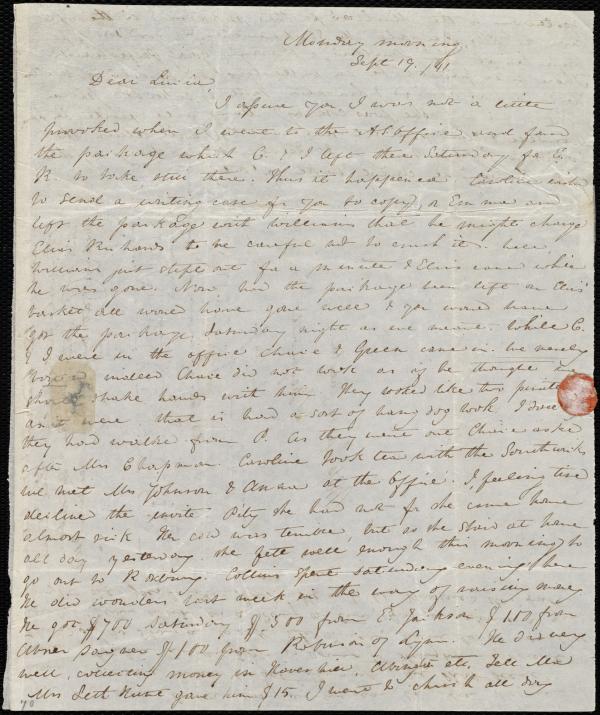 Monday morning
Sept 19. /41
Dear Lucia,
I assure you I was not a little
provoked when I went to the AS office and found
the package which C. & I left there Saturday for E.
R. to take, still there. Thus it happened. Caroline
to send a writing case for you to copy, & Emma and
left the package with Williams that he might charge
Elias Richards to be careful not to crush it.
Williams just stept out for a minute & Elias came while
he was gone. Now had the package been left in Elias'
basket all would have gone well & you would have
got the package Saturday night as we meant. While C.
& I were in the office Chace & Green came in. We merely
indeed Chace did not look as if he thought we
should shake hands with him. They looked like two pirates
as it were that is had a sort of hang dog look. I
they had walked from P. As they went out Chace asked
after Mrs Chapman. Caroline took tea with the Southwicks
we met Mrs Johnson & Anna at the Office. I, feeling tired
declined the invite. Pity she had not for she came home
almost sick. Her cold was terrible, but as she staid at home
all day yesterday she felt well enough this morning to
go out to Roxbury. Collins spent Saturday evening here
He did wonders last week in the way of raising money
He got $700 Saturday $500 from E. Jackson, $100 from
Abner $100 from Robinson of Lynn. He did very
well, collecting money in Haverhill, Abington etc. Tell
Mrs Seth Hunt gave him $15. I went to church all day